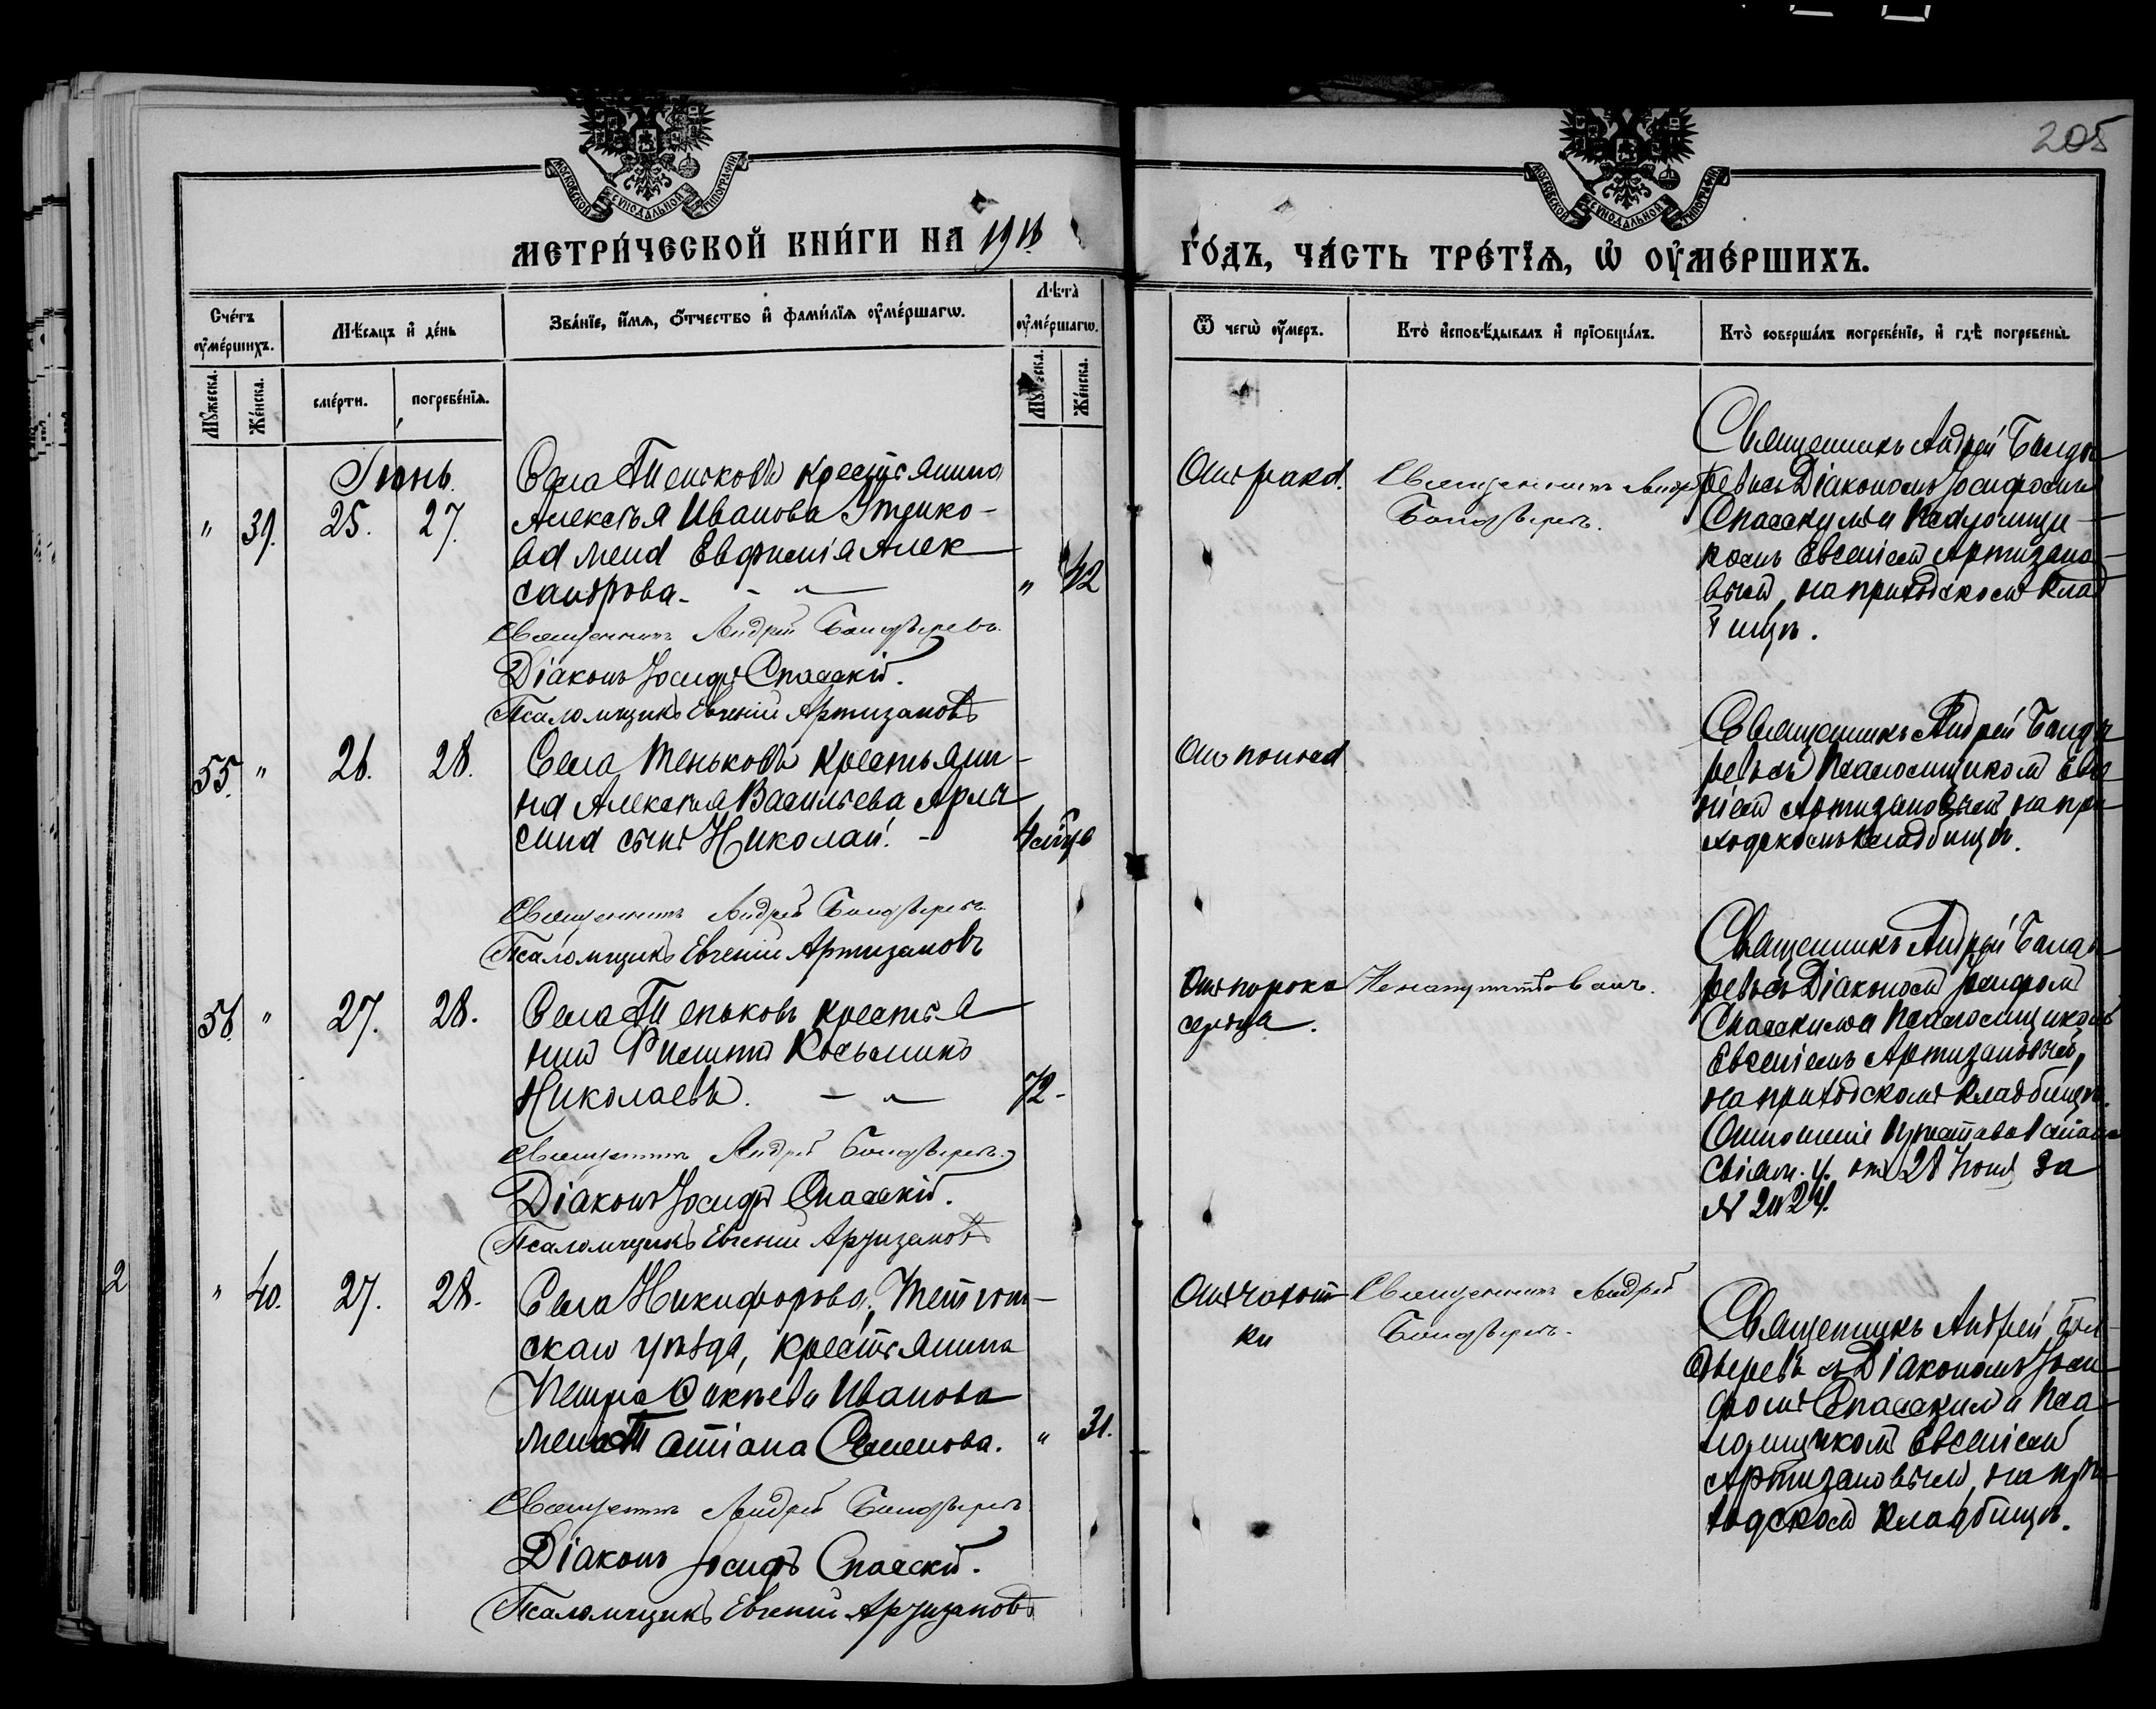 205
МОСКОВСКОЙ СУНОДАЛЬНОЙ ТИПОГРАФІИ
МОСКОВСКОЙ СУНОДАЛЬНОЙ ТИПОГРАФІИ
МЕТРИ́ЧЕСКОЙ КНИ́ГИ НА 191
ГО́ДЪ, ЧА́СТЬ ТРЕ́ТІѦ, Ѡ҆ ОУ҆МЕ́РШИХЪ.
Сче́тъ оу҆ме́ршихъ.
Мѣ́сѧцъ и҆ де́нь
Зва́нїе, и҆́мѧ, ѻ҆́тчество и҆ фами́лїѧ оу҆ме́ршагѡ.
Лѣ́та̀ оу҆ме́ршагѡ.
Ѿ чегѡ̀ оу҆́меръ.
Кто̀ и҆сповѣ́дывалъ и҆ прїѻбща́лъ.
Кто̀ соверша́лъ погребе́нїе, и҆ гдѣ̀ погребены̀.
Мꙋ́жеска. Же́нска. сме́рти. погребе́нїѧ. Мꙋ́жеска. Же́нска.
Іюнь.
" 39. 25. 27.
Села Теньковъ крестьянина
Алексѣя Иванова
жена Евфимія Алек
сандрова. - " 42
Священникъ Андрей Болдыревъ.
Діаконъ Іосифъ Спасскій.
Псаломщикъ Евгеній Артизановъ
Отъ рака.
Священникъ Андрей
Болдыревъ.
Священникъ Андрей Болды
ревъ съ Діакономъ Іосифомъ
Спасскимъ и Псаломщи
комъ Евгеніемъ Артизано
вымъ, на приходскомъ клад
бищѣ.
55. " 26. 28.
Села Теньковъ крестьяни
на Алексѣя Васильева
сынъ Николай. -
Священникъ Андрей Болдыревъ
Псаломщикъ Евгеній Артизановъ
Отъ поноса
Священникъ Андрей Болды
ревъ съ Псаломщикомъ Евге
ніемъ Артизановымъ на при
ходскомъ кладбищѣ.
56. " 27. 28.
Села Теньковъ крестья
нинъ Косьминъ
Николаевъ. - " 72 -
Священникъ Андрей Болдыревъ.
Діаконъ Іосифъ Спасскій.
Псаломщикъ Евгеній Артизановъ
Отъ порока
сердца.
Не напутствованъ.
Священникъ Андрей Болды
ревъ съ Діакономъ Іосифомъ
Спасскимъ и Псаломщикомъ
Евгеніемъ Артизановымъ,
на приходскомъ кладбищѣ.
Отношеніе Пристава 1 стана
Свіяж. у. отъ 28 Іюня за
№ 2124.
" 40. 27. 28.
Села Никифорова, Тетюш
скаго уѣзда, крестьянина
Петра Иванова
жена Татіана Семенова. " 31.
Священникъ Андрей Болдыревъ
Діаконъ Іосифъ Спасскій.
Псаломщикъ Евгеній Артизановъ
Отъ чахот
ки
Священникъ Андрей
Болдыревъ.
Священникъ Андрей Бол
дыревъ съ Діакономъ Іоси
фомъ Спасскимъ и Пса
ломщикомъ Евгеніемъ
Артизановымъ, на при
ходскомъ кладбищѣ.
2